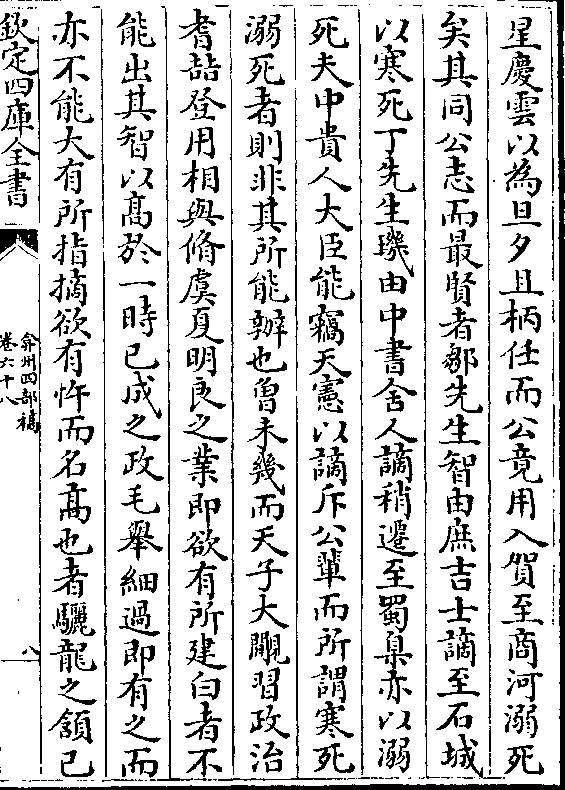 星慶雲以為旦夕且柄任而公竟用入賀至商河溺死
矣其同公志而最賢者鄒先生智由庶吉士謫至石城
以寒死丁先生璣由中書舍人謫稍遷至蜀臬亦以溺
死夫中貴人大臣能竊天憲以謫斥公輩而所謂寒死
溺死者則非其所能辦也曾未幾而天子大覿習政治
耆喆登用相與脩虞夏明良之業即欲有所建白者不
能出其智以髙於一時已成之政毛舉細過即有之而
亦不能大有所指摘欲有忤而名髙也者驪龍之頷已
欽定四庫全書
弇州四部稿
卷六十八
八